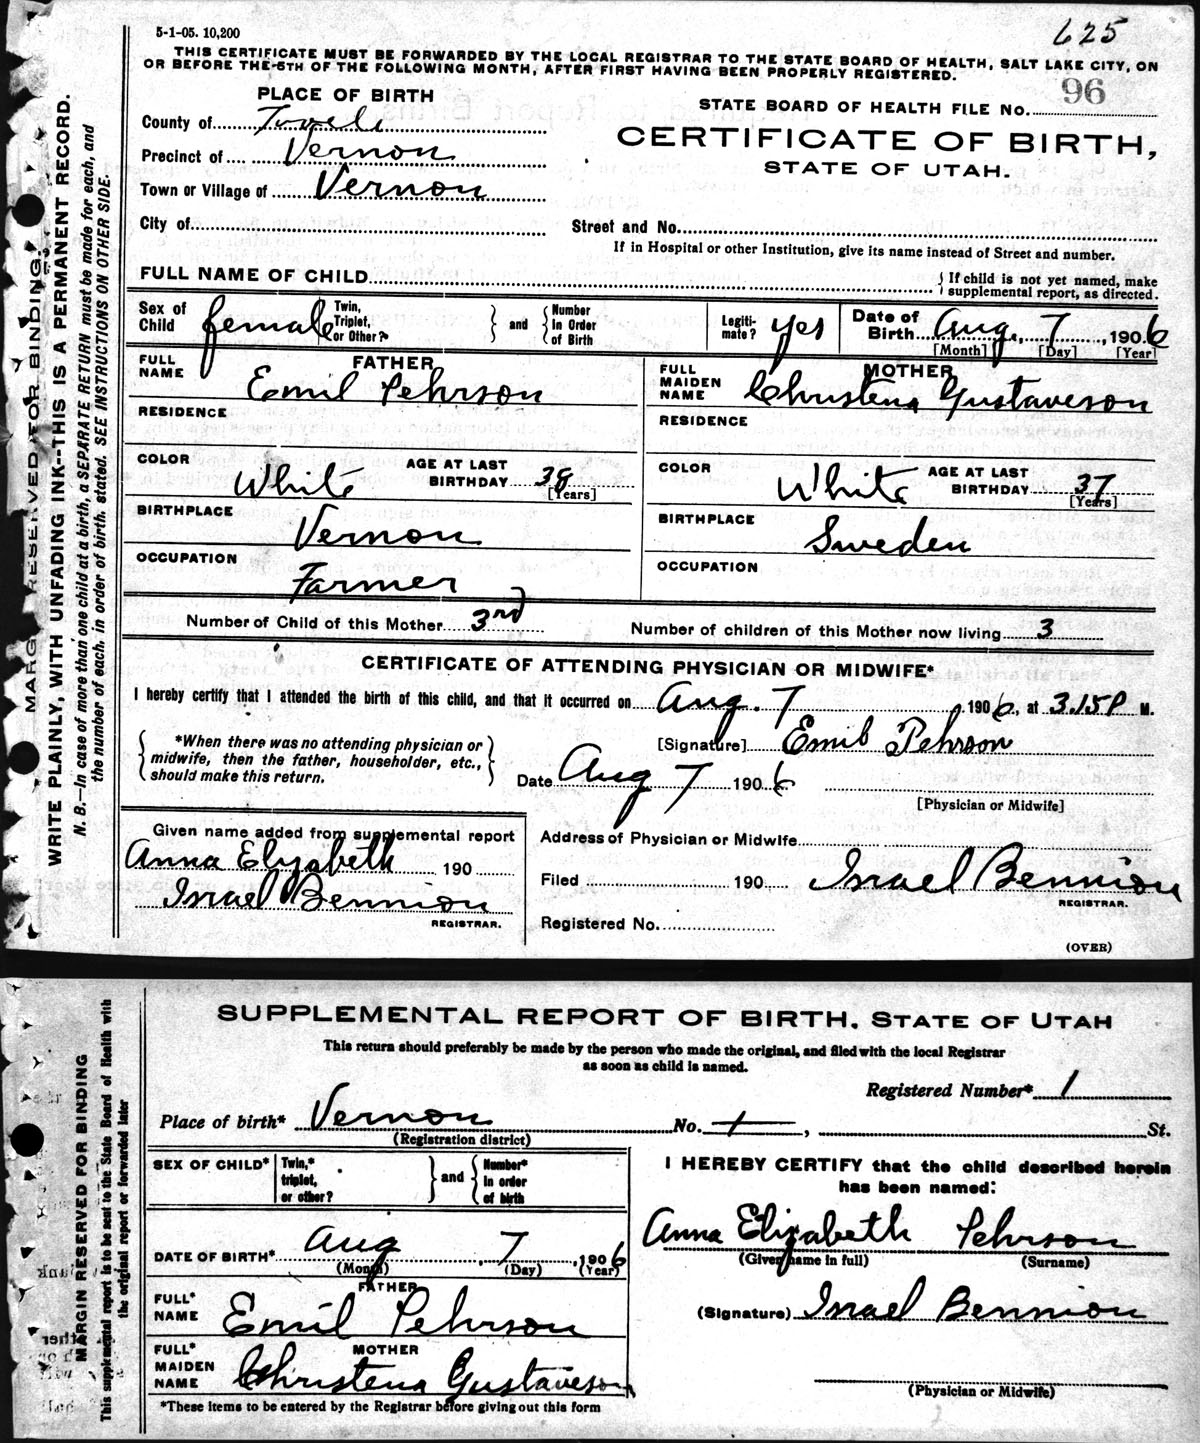 5-1-05. 10,200
625
THIS CERTIFICATE MUST BE FORWARDED BY THE LOCAL REGISTRAR TO THE STATE BOARD OF HEALTH, SALT LAKE CITY, ON
OR BEFORE THE 5TH OF THE FOLLOWING MONTH, AFTER FIRST HAVING BEEN PROPERLY REGISTERED.
PLACE OF BIRTH
County of Tooele
Precinct of Vernon
Town or Village of Vernon
City of
STATE BOARD OF HEALTH FILE No. 96
CERTIFICATE OF BIRTH,
STATE OF UTAH.
Street and No.
If in Hospital or other Institution, give its name instead of Street and number.
FULL NAME OF CHILD
{ If child is not yet named, make
supplemental report, as directed.
Sex of Child female
Twin, Triplet, or Other? } and { Number in Order of Birth
Legiti-mate? yes
Date of Birth Aug. 7, 1906
[Month] [Day] [Year]
FATHER
FULL NAME Emil Pehrson
RESIDENCE
COLOR White AGE AT LAST BIRTHDAY 38
[Years]
BIRTHPLACE Vernon
OCCUPATION Farmer
MOTHER
FULL MAIDEN NAME Christena Gustaveson
RESIDENCE
COLOR White AGE AT LAST BIRTHDAY 37
[Years]
BIRTHPLACE Sweden
OCCUPATION
Number of Child of this Mother 3rd
Number of children of this Mother now living 3
CERTIFICATE OF ATTENDING PHYSICIAN OR MIDWIFE*
I hereby certify that I attended the birth of this child, and that it occurred on Aug. 7, 1906, at 3.15P M.
*When there was no attending physician or
midwife, then the father, householder, etc.,
should make this return.
[Signature] Emil Pehrson
Date Aug 7 1906
[Physician or Midwife]
Given name added from supplemental report
Anna Elizabeth 190
Israel Bennion
REGISTRAR.
Address of Physician or Midwife
Filed 190 Israel Bennion
REGISTRAR.
Registered No.
(OVER)
MARGIN RESERVED FOR BINDING.
WRITE PLAINLY, WITH UNFADING INK--THIS IS A PERMANENT RECORD.
N. B.—In case of more than one child at a birth, a SEPARATE RETURN must be made for each, and
the number of each, in order of birth, stated. SEE INSTRUCTIONS ON OTHER SIDE.
SUPPLEMENTAL REPORT OF BIRTH, STATE OF UTAH
This return should preferably be made by the person who made the original, and filed with the local Registrar
as soon as child is named.
Registered Number* 1
Place of birth* Vernon No. 1, St.
(Registration district)
SEX OF CHILD*
Twin,* triplet, or other? } and { Number* in order of birth
DATE OF BIRTH* Aug 7, 1906
(Month) (Day) (Year)
FATHER
FULL* NAME Emil Pehrson
MOTHER
FULL* MAIDEN NAME Christena Gustaveson
*These items to be entered by the Registrar before giving out this form
I HEREBY CERTIFY that the child described herein
has been named:
Anna Elizabeth Pehrson
(Given name in full) (Surname)
(Signature) Israel Bennion
(Physician or Midwife)
MARGIN RESERVED FOR BINDING
This supplemental report is to be sent to the State Board of Health with
the original report or forwarded later